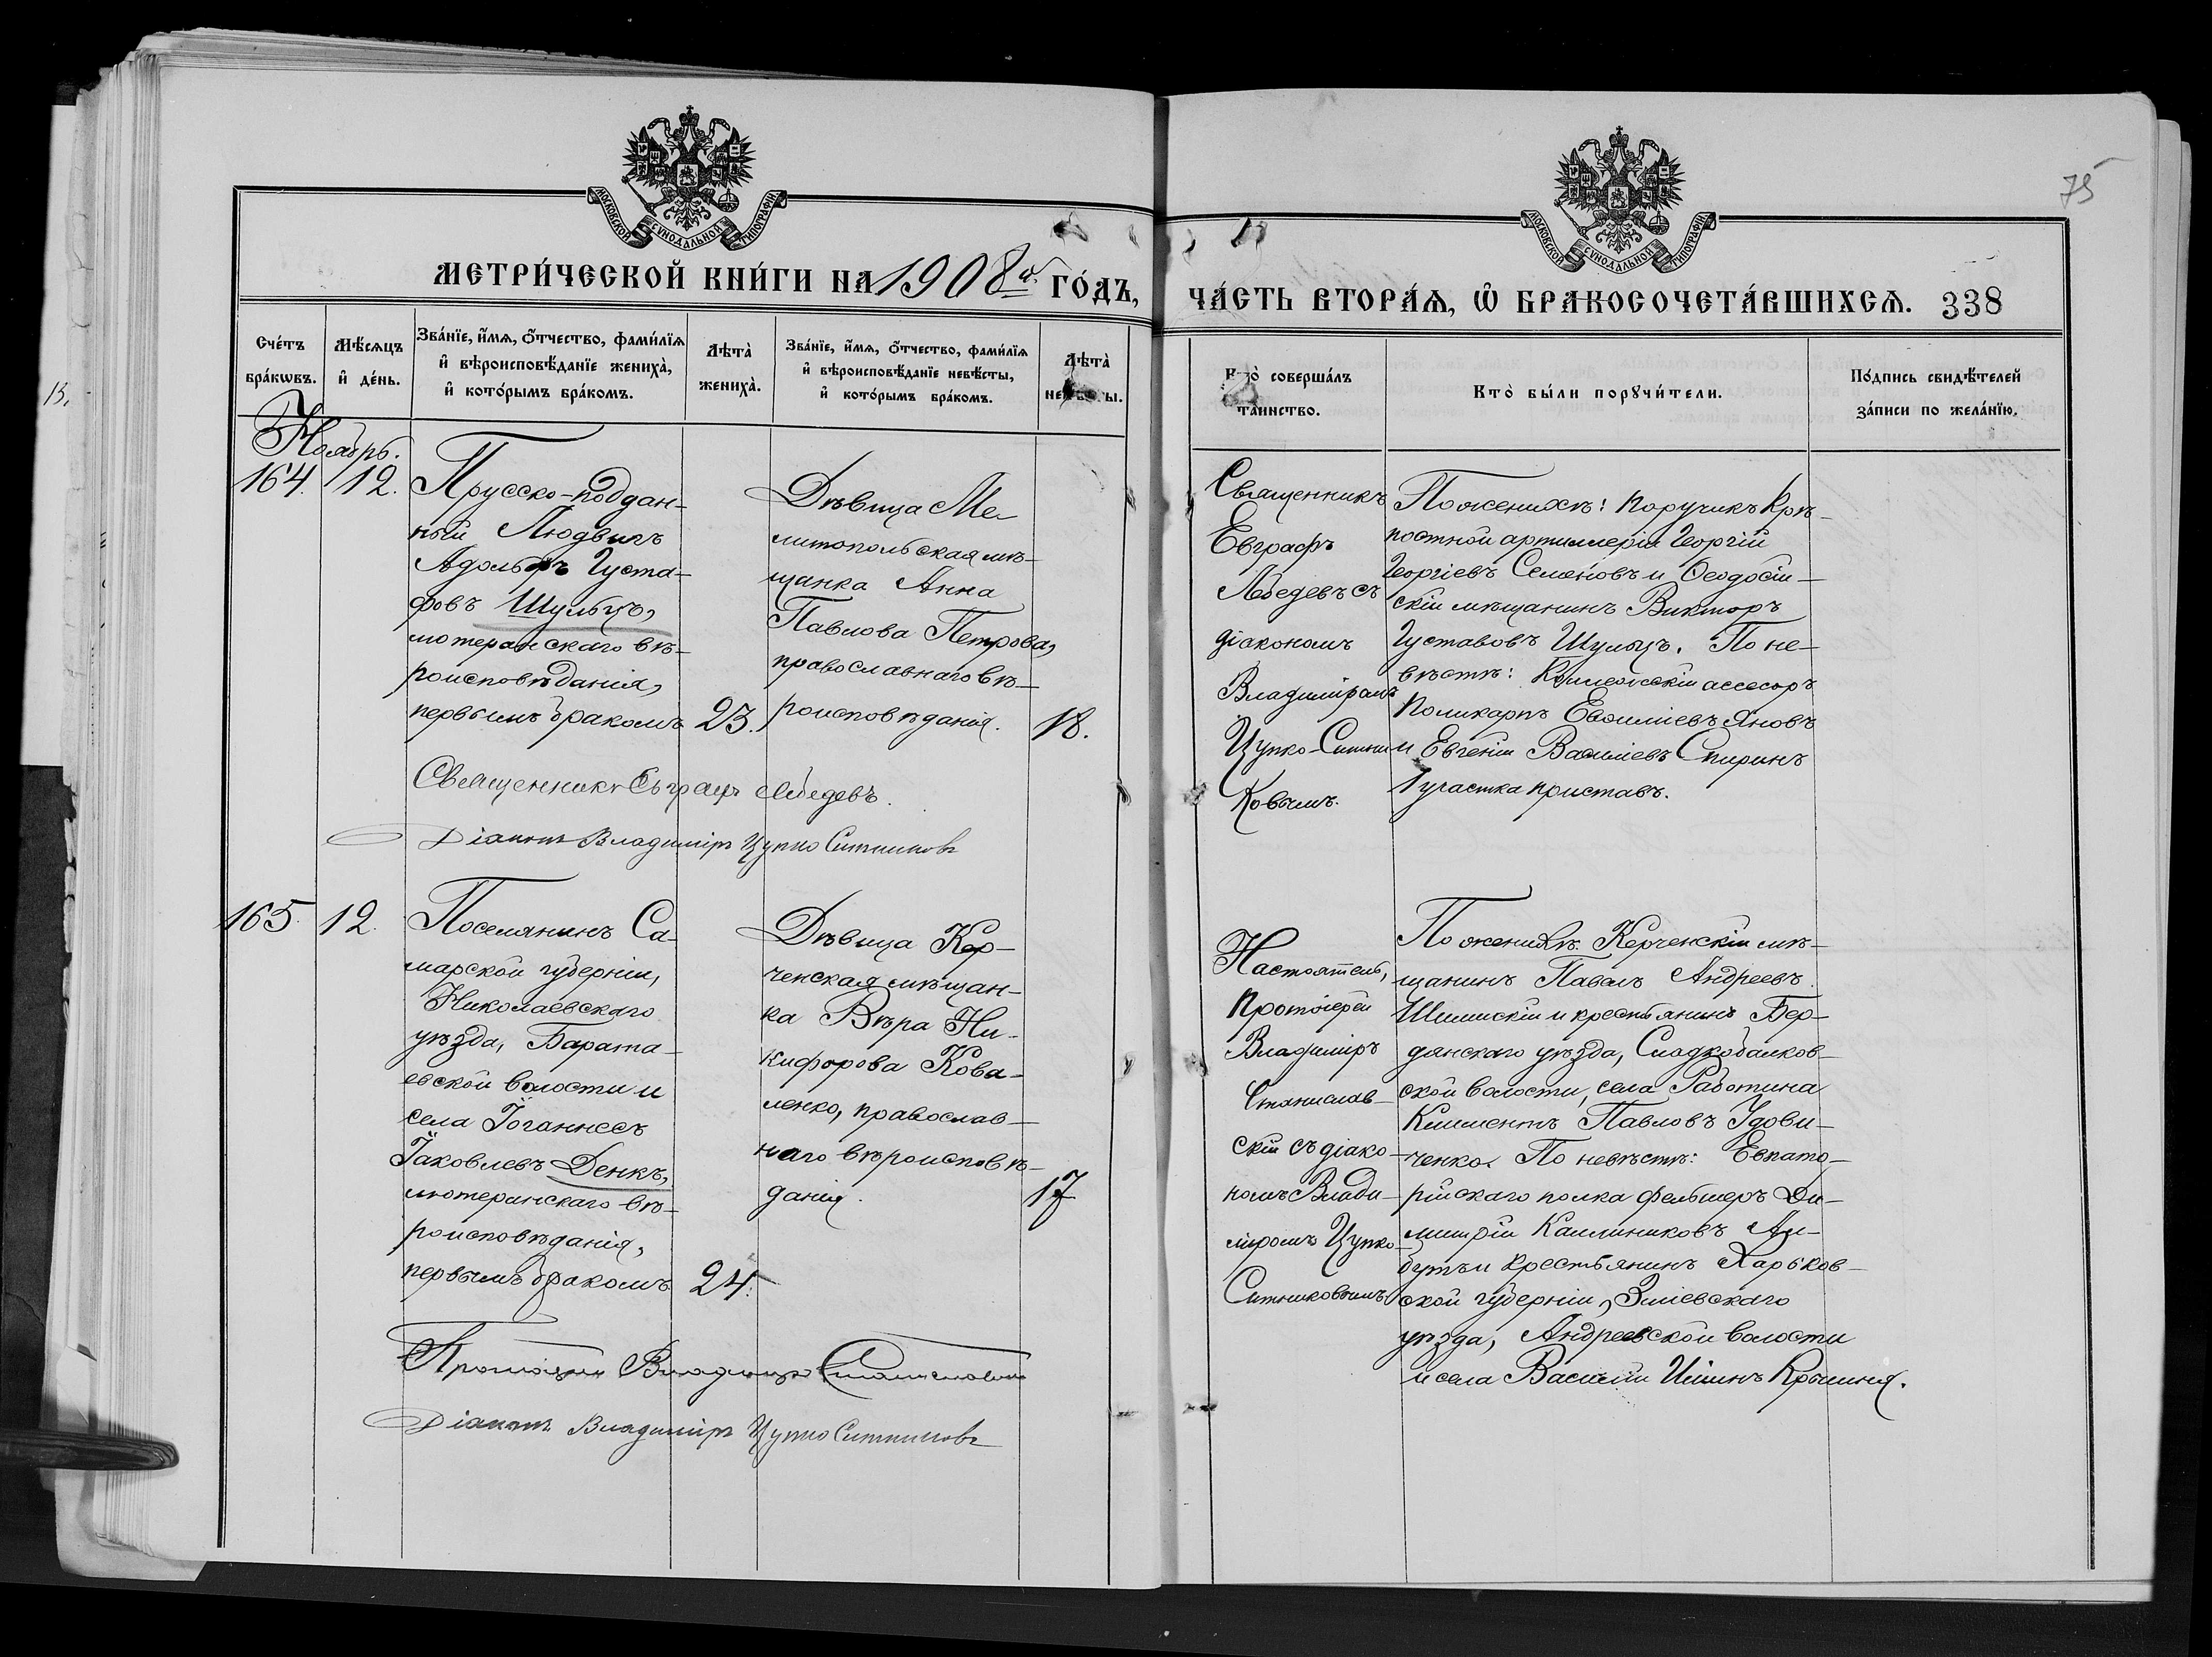 75
13.
МОСКОВСКОЙ СѴНОДАЛЬНОЙ ТИПОГРАФІИ
МЕТРИ́ЧЕСКОЙ КНИ́ГИ НА 1908й ГО́ДЪ,
Сче́тъ бра́кωвъ.
Мѣ́сяцъ и҆ де́нь.
Зва́нїе, и҆́мя, ѻ҆́тчество, фами́лїя
и҆ вѣроисповѣ́данїе жениха̀,
и҆ кото́рымъ бра́комъ.
Лѣта̀ жениха̀.
Зва́нїе, и҆́мя, ѻ҆́тчество, фами́лїя
и҆ вѣроисповѣ́данїе невѣ́сты,
и҆ кото́рымъ бра́комъ.
Лѣта̀
Ноябрь.
164. 12.
Прусско-поддан-
ный Людвигъ
Адольфъ Густа-
фовъ Шульцъ,
лютеранскаго вѣ-
роисповѣданія,
первымъ бракомъ 23.
Дѣвица Ме-
литопольская мѣ-
щанка Анна
Павлова Петрова,
православнаго вѣ-
роисповѣданія. 18.
Священникъ Евграфъ Лебедевъ.
Діаконъ Владиміръ Цупко Ситниковъ
165. 12.
Поселянинъ Са-
марской губерніи,
Николаевскаго
уѣзда, Барата-
евской волости и
села Іоганнесъ
Іаковлевъ Денкъ,
лютеранскаго вѣ-
роисповѣданія,
первымъ бракомъ 24.
Дѣвица Кер-
ченская мѣщан-
ка Вѣра Ни-
кифорова Кова-
ленко, православ-
наго вѣроисповѣ-
данія. 17
Протоіерей Владиміръ Станиславскій
Діаконъ Владиміръ Цупко Ситниковъ
МОСКОВСКОЙ СѴНОДАЛЬНОЙ ТИПОГРАФІИ
ЧА́СТЬ ВТОРА́Я, Ѽ БРАКОСОЧЕТА́ВШИХСЯ. 338
Кто̀ соверша́лъ
та́инство.
Кто̀ бы́ли порꙋчи́тели.
По́дпись свидѣ́телей
за́писи по жела́нїю.
Священникъ
Евграфъ
Лебедевъ съ
діакономъ
Владиміромъ
Цупко-Ситни
ковымъ.
По женихѣ: поручикъ Крѣ-
постной артиллеріи Георгій
Георгіевъ Семеновъ и Ѳеодосій-
скій мѣщанинъ Викторъ
Густавовъ Шульцъ. По не-
вѣстѣ: Коллежскій ассесоръ
Поликарпъ Евѳиміевъ Яновъ
и Евгеній Василіевъ Спиринъ
1 участка приставъ.
Настоятель,
Протоіерей
Владиміръ
Станислав-
скій съ діако-
номъ Влади-
міромъ Цупко-
Ситниковымъ
По женихѣ: Керченскій мѣ-
щанинъ Павелъ Андреевъ
и крестьянинъ Бер-
дянскаго уѣзда, Сладкобалков-
ской волости, села Работина
Климентъ Павловъ Удови-
ченко. По невѣстѣ: Евпато-
рійскаго полка фельдшеръ Ди-
митрій Каллиниковъ
и крестьянинъ Харьков-
ской губерніи, Зміевскаго
уѣзда, Андреевской волости
и села Василій Ильинъ